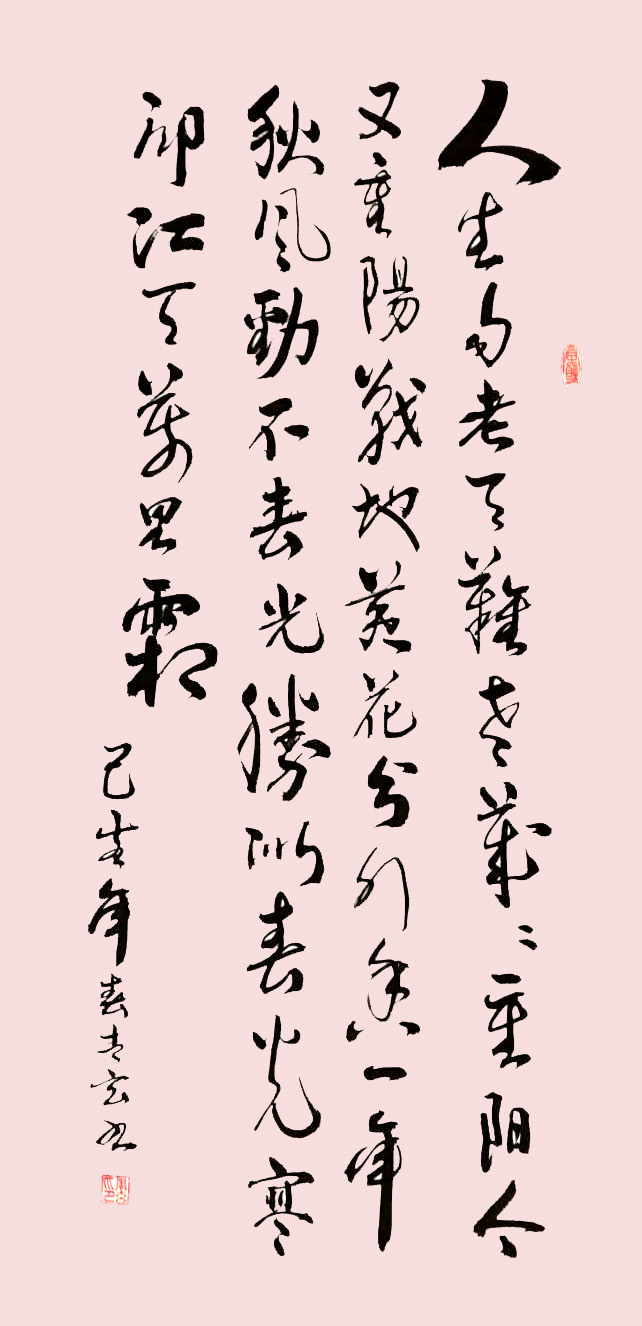 人生易老天難老歲〻重阳今
又重陽戰地黃花分外香一年
秋風勁不春光勝似春光寥
廓江天萬里霜
己亥年春书